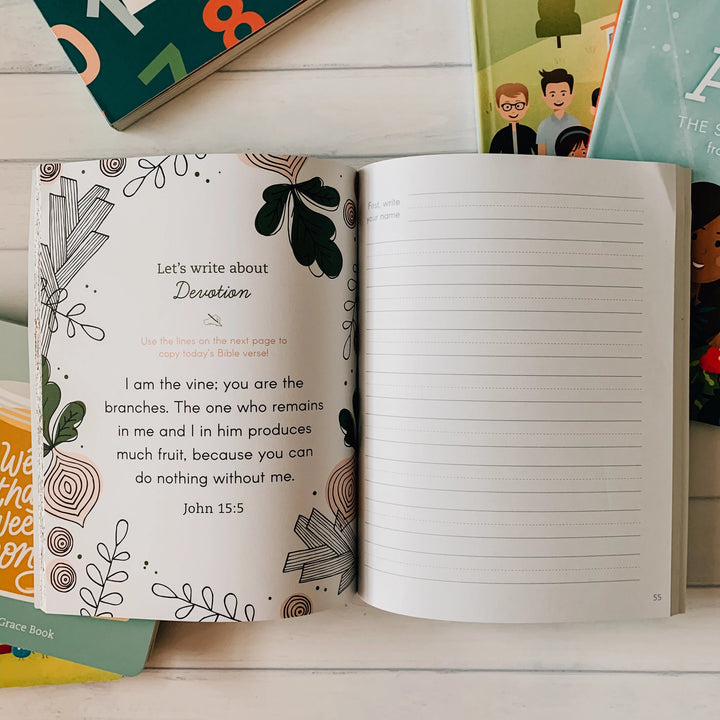 8
7
A
THE S
fro
Let's write about
Devotion
Use the lines on the next page to
copy today's Bible verse!
I am the vine; you are the
branches. The one who remains
in me and I in him produces
much fruit, because you can
do nothing without me.
John 15:5
First, write
your name
55
We
tha
wee
on
Grace Book